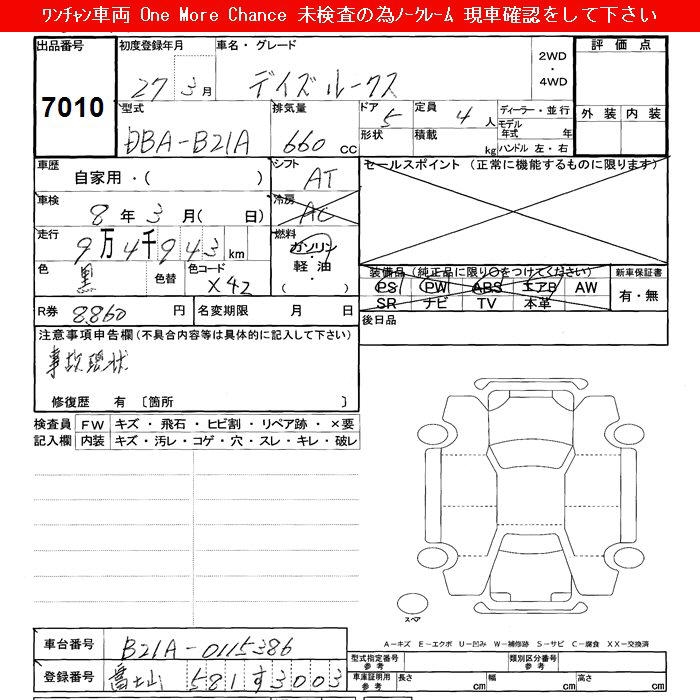 ワンチャン車両 One More Chance 未検査の為ノークレーム 現車確認をして下さい
出品番号 7010
初度登録年月 27 3月
車名・グレード デイズルークス
2WD・4WD
評価点
外装 内装
型式 DBA-B21A
排気量 660 cc
ドア 5
形状
定員 4人
積載 kg
ディーラー・並行
モデル年式 年
ハンドル 左・右
車歴 自家用・( )
シフト AT
セールスポイント (正常に機能するものに限ります)
車検 8年 3月( 日)
冷房 AC
走行 9万4千943 km
燃料 ガソリン・軽油・( )
色 黒 色替
色コード X42
装備品(純正品に限り○をつけてください)
PS PW ABS エアB AW
SR ナビ TV 本革
新車保証書 有・無
R券 8860 円
名変期限 月 日
後日品
注意事項申告欄(不具合内容等は具体的に記入して下さい)
事故現状
修復歴 有 〔箇所 〕
検査員記入欄
FW キズ・飛石・ヒビ割・リペア跡・×要
内装 キズ・汚レ・コゲ・穴・スレ・キレ・破レ
スペア
A-キズ E-エクボ U-凹み W-補修跡 S-サビ C-腐食 XX-交換済
車台番号 B21A-0115386
型式指定番号 参考
類別区分番号 参考
登録番号 富士山 581 す3003
車庫証明用参考 長さ cm 幅 cm 高さ cm